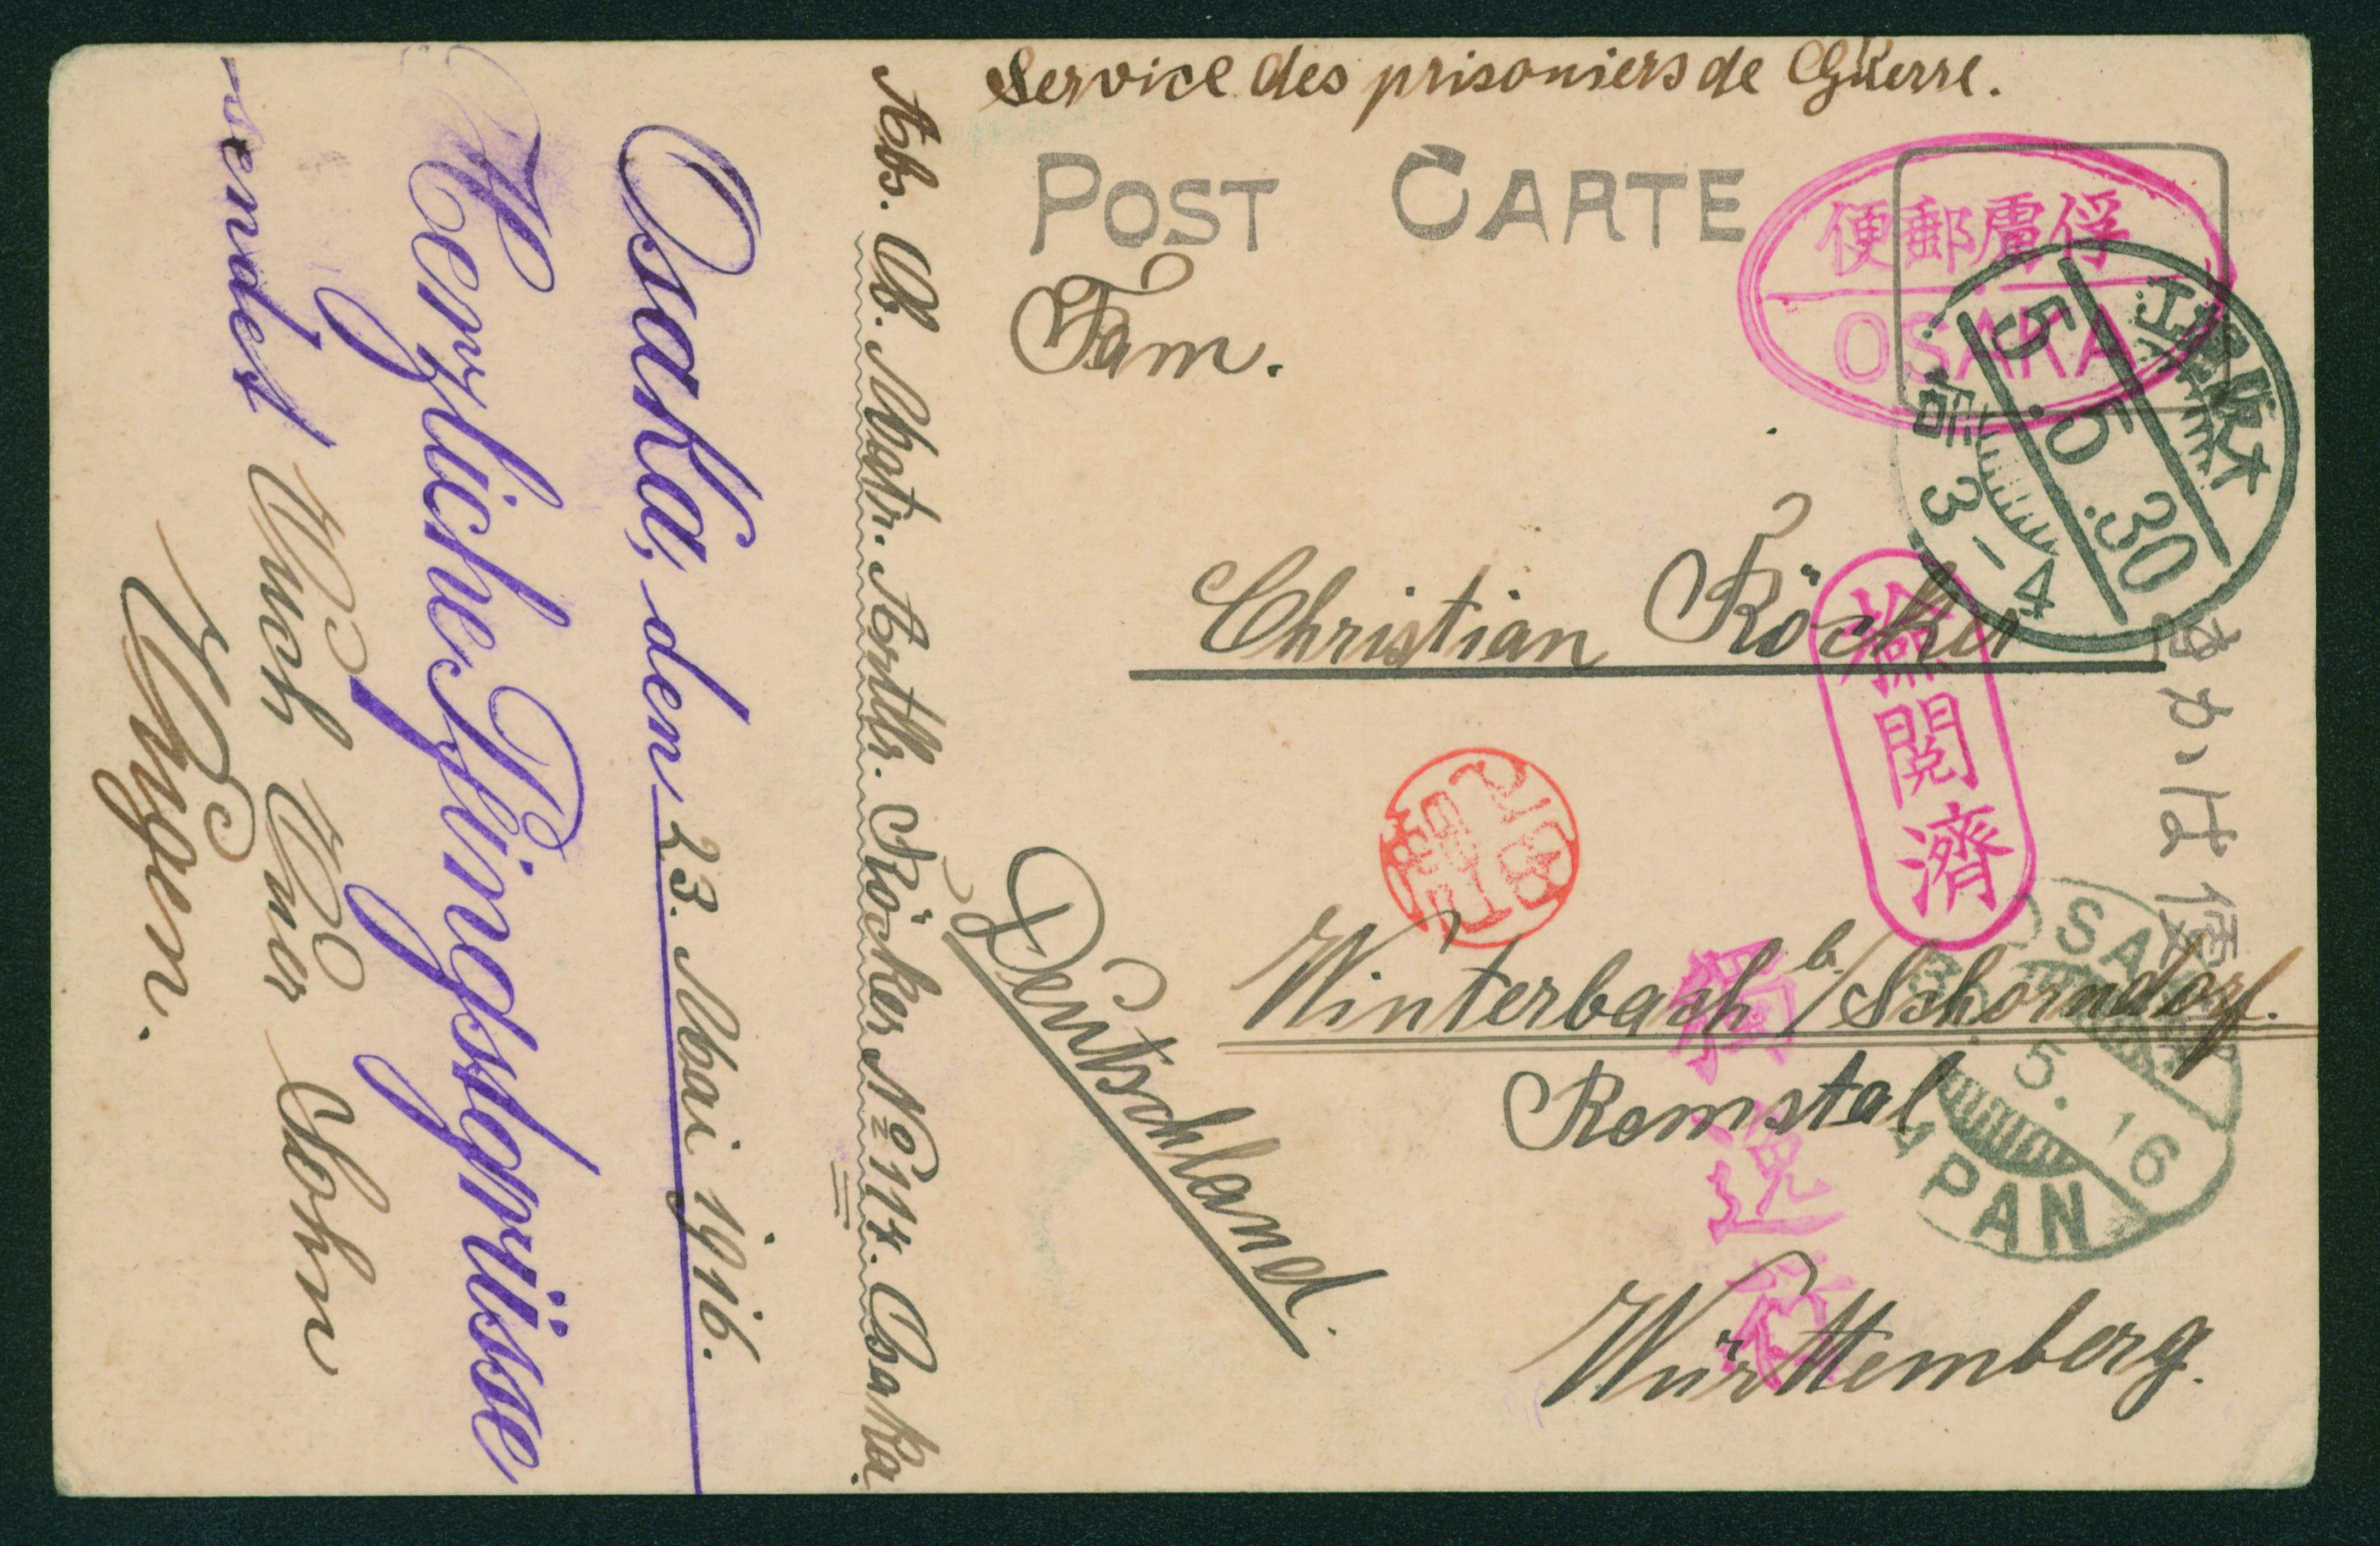 Service des prisoniers de Guerre.
POST CARTE
俘虜郵便
OSAKA
大阪
5.5.30
前 3-4
Fam.
Christian Röcker
検閲濟
Winterbach b/Schorndorf.
Remstal
Württemberg.
Deutschland.
獨逸行
きかは便郵
OSAKA
30.5.16
JAPAN
Abs. Ob. Matr. Artllr. Röcker No 117. Osaka.
Osaka, den 23. Mai 1916.
Herzliche Pfingstgrüsse
sendet Euch Euer Sohn
Eugen.